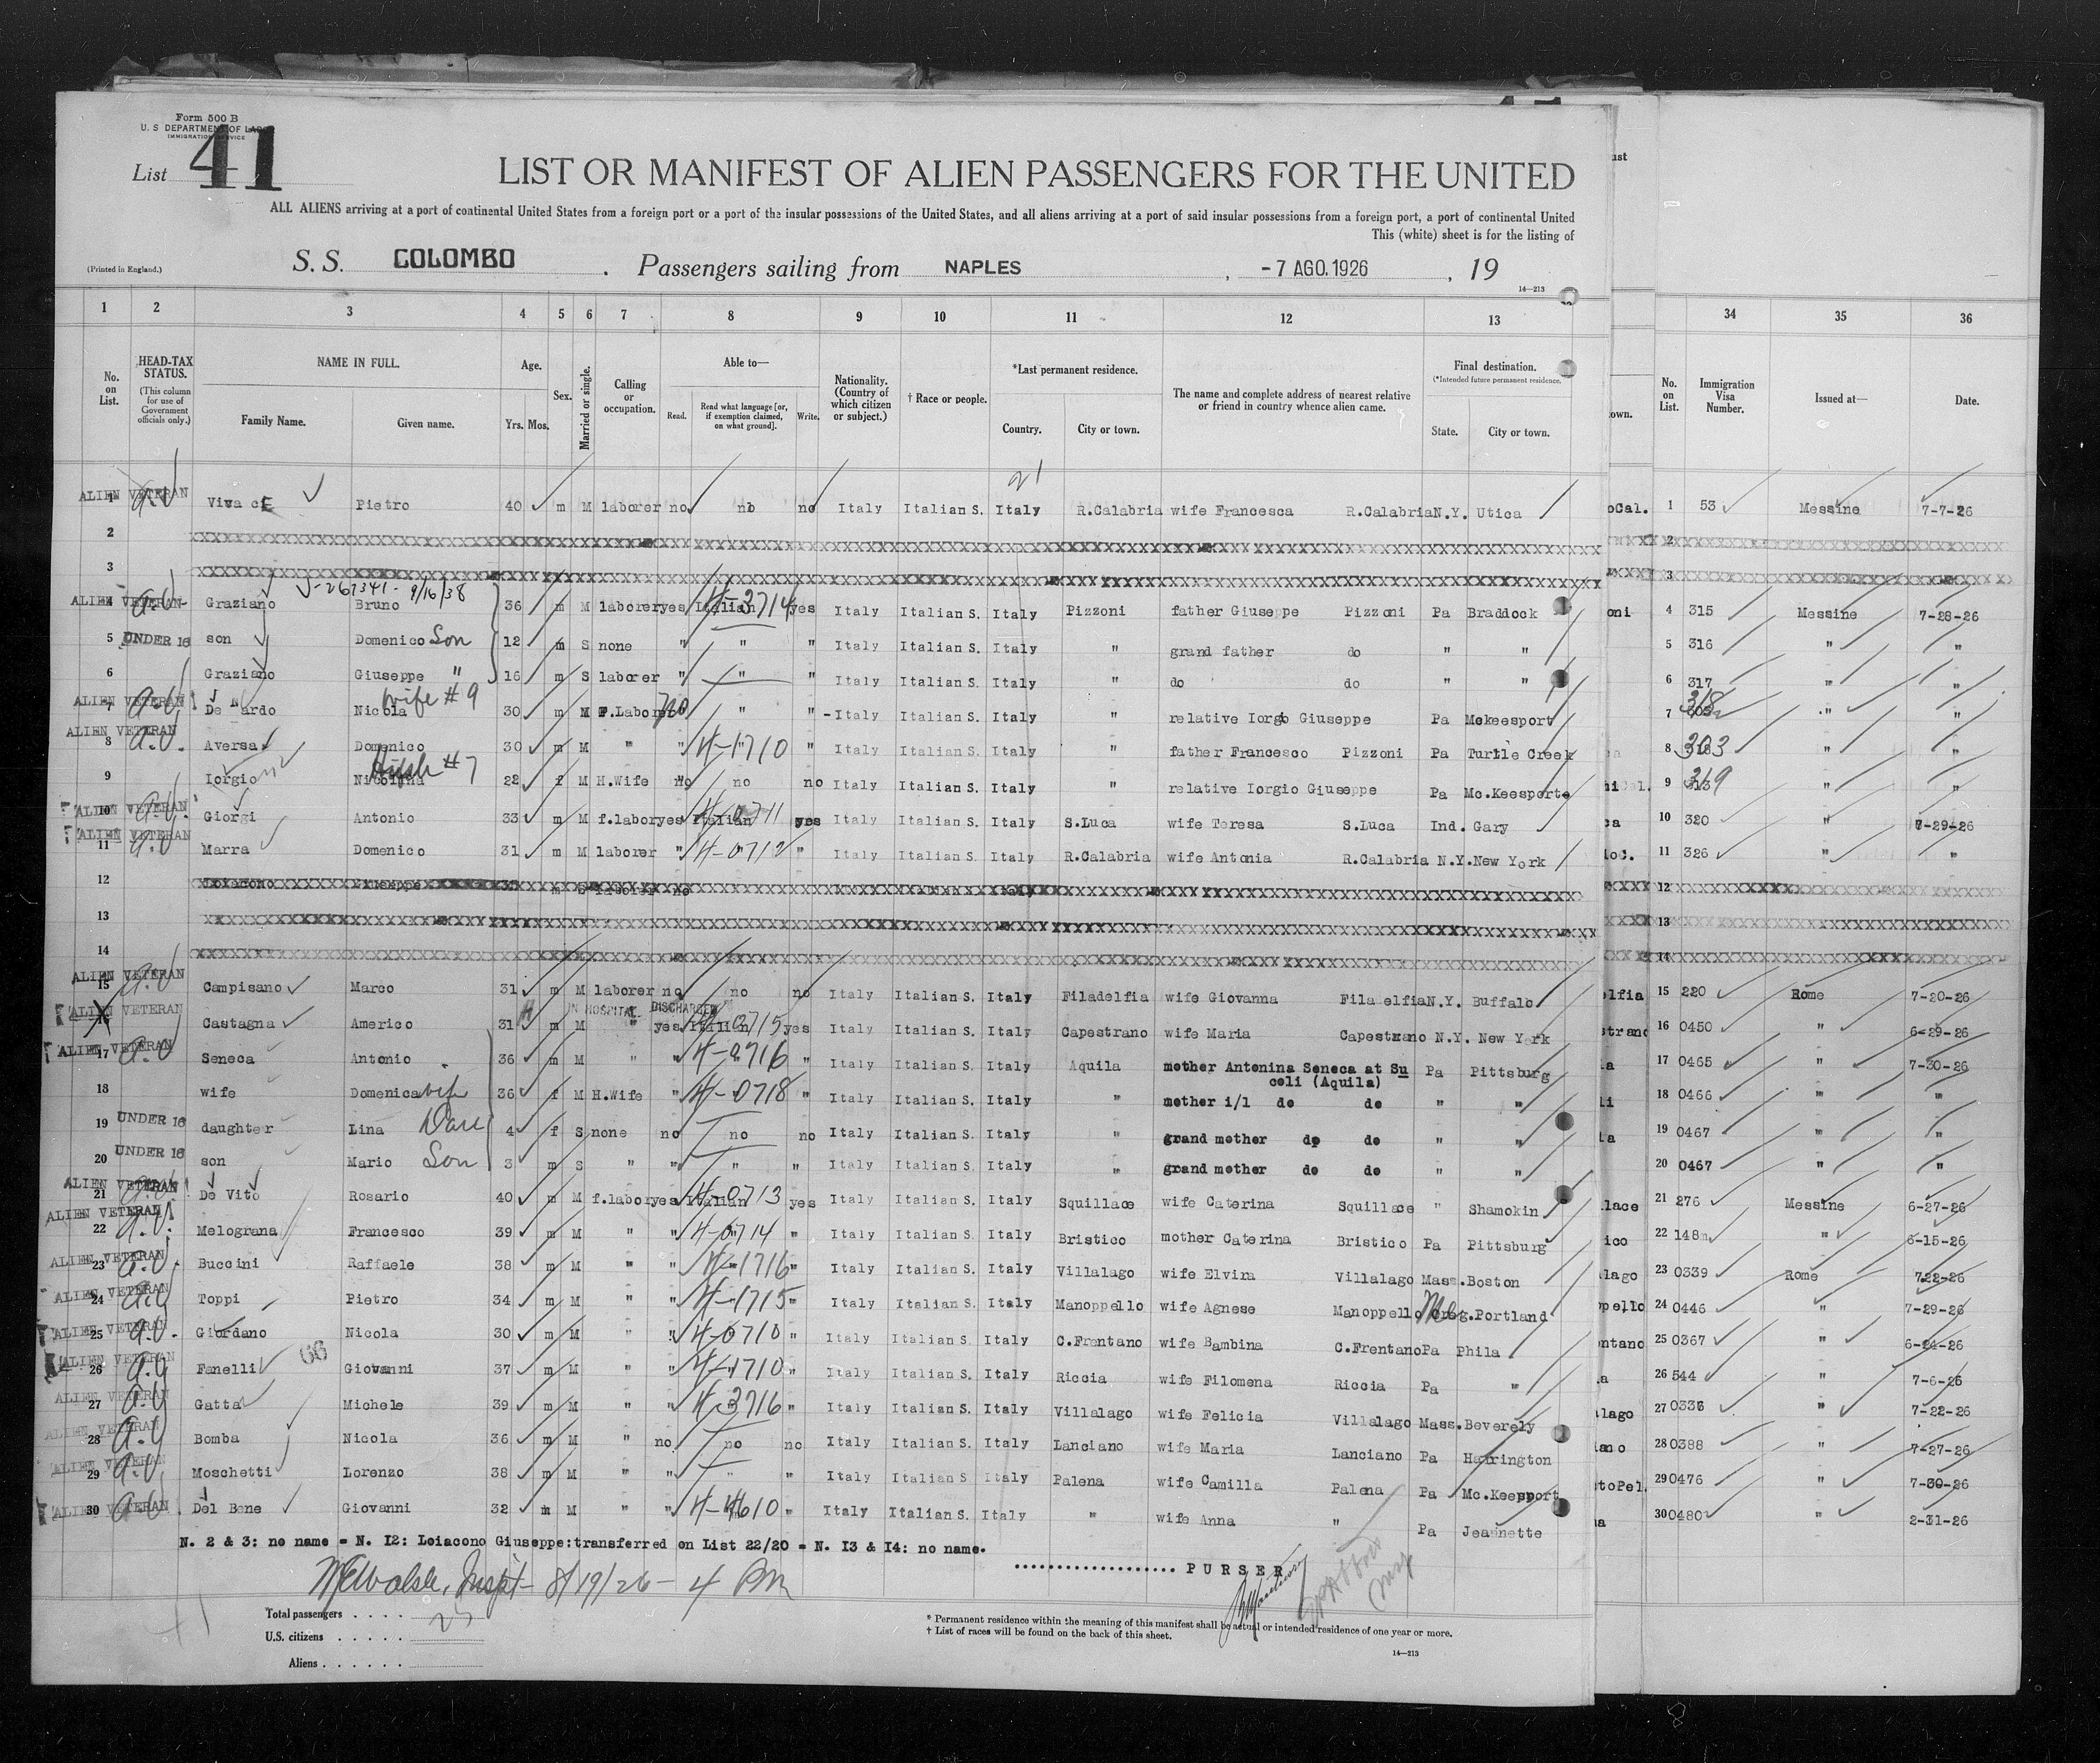 Form 500 B
U. S DEPARTMENT OF LABOR
IMMIGRATION SERVICE
List 41
LIST OR MANIFEST OF ALIEN PASSENGERS FOR THE UNITED
ALL ALIENS arriving at a port of continental United States from a foreign port or a port of the insular possessions of the United States, and all aliens arriving at a port of said insular possessions from a foreign port, a port of continental United
This (white) sheet is for the listing of
(Printed in England.) S. S. COLOMBO . Passengers sailing from NAPLES , -7 AGO.1926 , 19
14—213
1 2 3 4 5 6 7 8 9 10 11 12 13 34 35 36
No. on List. HEAD-TAX STATUS. (This column for use of Government officials only.) NAME IN FULL. Family Name. Given name. Age. Yrs. Mos. Sex. Married or single. Calling or occupation. Able to— Read. Read what language [or, if exemption claimed, on what ground]. Write. Nationality. (Country of which citizen or subject.) † Race or people. *Last permanent residence. Country. City or town. The name and complete address of nearest relative or friend in country whence alien came. Final destination. (*Intended future permanent residence. State. City or town. No. on List. Immigration Visa Number. Issued at— Date.
21
ALIEN VETERAN 1 a.v Viva cE Pietro 40 m M laborer no no no Italy Italian S. Italy R.Calabria wife Francesca R.Calabria N.Y. Utica oCal. 1 53 Messine 7-7-26
2 2
3 3
V-267341- 9/16/38
ALIEN VETERAN 4 a.v. Graziano Bruno 36 m M laborer yes Italian 4-3714 yes Italy Italian S. Italy Pizzoni father Giuseppe Pizzoni Pa Braddock oni 4 315 Messine 7-28-26
5 UNDER 16 son Domenico Son 12 m S none " " " Italy Italian S. Italy " grand father do " " 5 316 " "
6 Graziano Giuseppe " 16 m S laborer " " " Italy Italian S. Italy " do do " " 6 317 " "
ALIEN VETERAN 7 a.v. De Nardo Nicola wife #9 30 m M F.Laborer no " " -Italy Italian S. Italy " relative Iorgio Giuseppe Pa Mckeesport 7 318 " "
ALIEN VETERAN 8 a.v. Aversa Domenico 30 m M " " 4-1710 " Italy Italian S. Italy " father Francesco Pizzoni Pa Turtle Creek 8 303 " "
9 Iorgio Nicolina #7 22 f M H.Wife no no no Italy Italian S. Italy " relative Iorgio Giuseppe Pa Mc.Keesporte 9 319 " "
ALIEN VETERAN 10 a.v. Giorgi Antonio 33 m M f.labor yes Italian 4-0711 yes Italy Italian S. Italy S.Luca wife Teresa S.Luca Ind. Gary ca 10 320 " 7-29-26
ALIEN VETERAN 11 a.v Marra Domenico 31 m M laborer " 4-0712 " Italy Italian S. Italy R.Calabria wife Antonia R.Calabria N.Y. New York 11 326 " "
12 Loiacono Giuseppe m S laborer no 12
13 13
14 14
ALIEN VETERAN 15 a.v Campisano Marco 31 m M laborer no no no Italy Italian S. Italy Filadelfia wife Giovanna Fila elfia N.Y. Buffalo elfia 15 220 Rome 7-20-26
IN HOSPITAL DISCHARGED
ALIEN VETERAN Castagna Americo 31 m M " yes Italian 4-0715 yes Italy Italian S. Italy Capestrano wife Maria Capestrano N.Y. New York strano 16 0450 " 6-29-26
ALIEN VETERAN 17 a.v Seneca Antonio 36 m M " " 4-0716 " Italy Italian S. Italy Aquila mother Antonina Seneca at Su coli (Aquila) Pa Pittsburg la 17 0465 " 7-30-26
18 wife Domenica wife 36 f M H.Wife " 4-0718 " Italy Italian S. Italy " mother i/l do do " " li 18 0466 " "
19 UNDER 16 daughter Lina 4 f S none no no no Italy Italian S. Italy " grand mother do do " " la 19 0467 " "
20 UNDER 16 son Mario Son 3 m S " " " " Italy Italian S. Italy " grand mother do do " " 20 0467 " "
ALIEN VETERAN 21 a.v. De Vito Rosario 40 m M f.labor yes Italian 4-0713 yes Italy Italian S. Italy Squillace wife Caterina Squillace " Shamokin lace 21 276 Messine 6-27-26
ALIEN VETERAN 22 a.v. Melograna Francesco 39 m M " " 4-0714 " Italy Italian S. Italy Bristico mother Caterina Bristico Pa Pittsburg ico 22 148 " 6-15-26
ALIEN VETERAN 23 a.v. Buccini Raffaele 38 m M " " 4-1716 " Italy Italian S. Italy Villalago wife Elvira Villalago Mass. Boston lago 23 0339 Rome 7.22-26
ALIEN VETERAN 24 a.v Toppi Pietro 34 m M " " 4-1715 " Italy Italian S. Italy Manoppello wife Agnese Manoppello Me Portland ppello 24 0446 " 7-29-26
ALIEN VETERAN 25 a.v. Giordano Nicola 30 m M " " 4-0710 " Italy Italian S. Italy C.Frentano wife Bambina C.Frentano Pa Phila entano 25 0367 " 6-24-26
ALIEN VETERAN 26 a.v Fanelli Giovanni 37 m M " " 4-1710 " Italy Italian S. Italy Riccia wife Filomena Riccia Pa " a 26 544 " 7-6-26
ALIEN VETERAN 27 a.v Gatta Michele 39 m M " " 4-3716 " Italy Italian S. Italy Villalago wife Felicia Villalago Mass. Beverely lago 27 0336 " 7-22-26
ALIEN VETERAN 28 a.v Bomba Nicola 36 m M " no no no Italy Italian S. Italy Lanciano wife Maria Lanciano Pa Harrington iano 28 0388 " 7-27-26
ALIEN VETERAN 29 a.v. Moschetti Lorenzo 38 m M " " " " Italy Italian S. Italy Palena wife Camilla Palena Pa Mc.Keesport toPel. 29 0476 " 7-30-26
ALIEN VETERAN 30 a.v. Del Bene Giovanni 32 m M " " " Italy Italian S. Italy " wife Anna " Pa Jeannette na 30 0480 " 2-31-26
N. 2 & 3: no name = N. I2: Loiacono Giuseppe:transferred on List 22/20 = N. I3 & I4: no name.
PURSER
Inspt- 8/19/26 - 4 Pm
Total passengers . . . .
U.S. citizens . . . . .
Aliens . . . . . .
* Permanent residence within the meaning of this manifest shall be actual or intended residence of one year or more.
† List of races will be found on the back of this sheet.
14—213